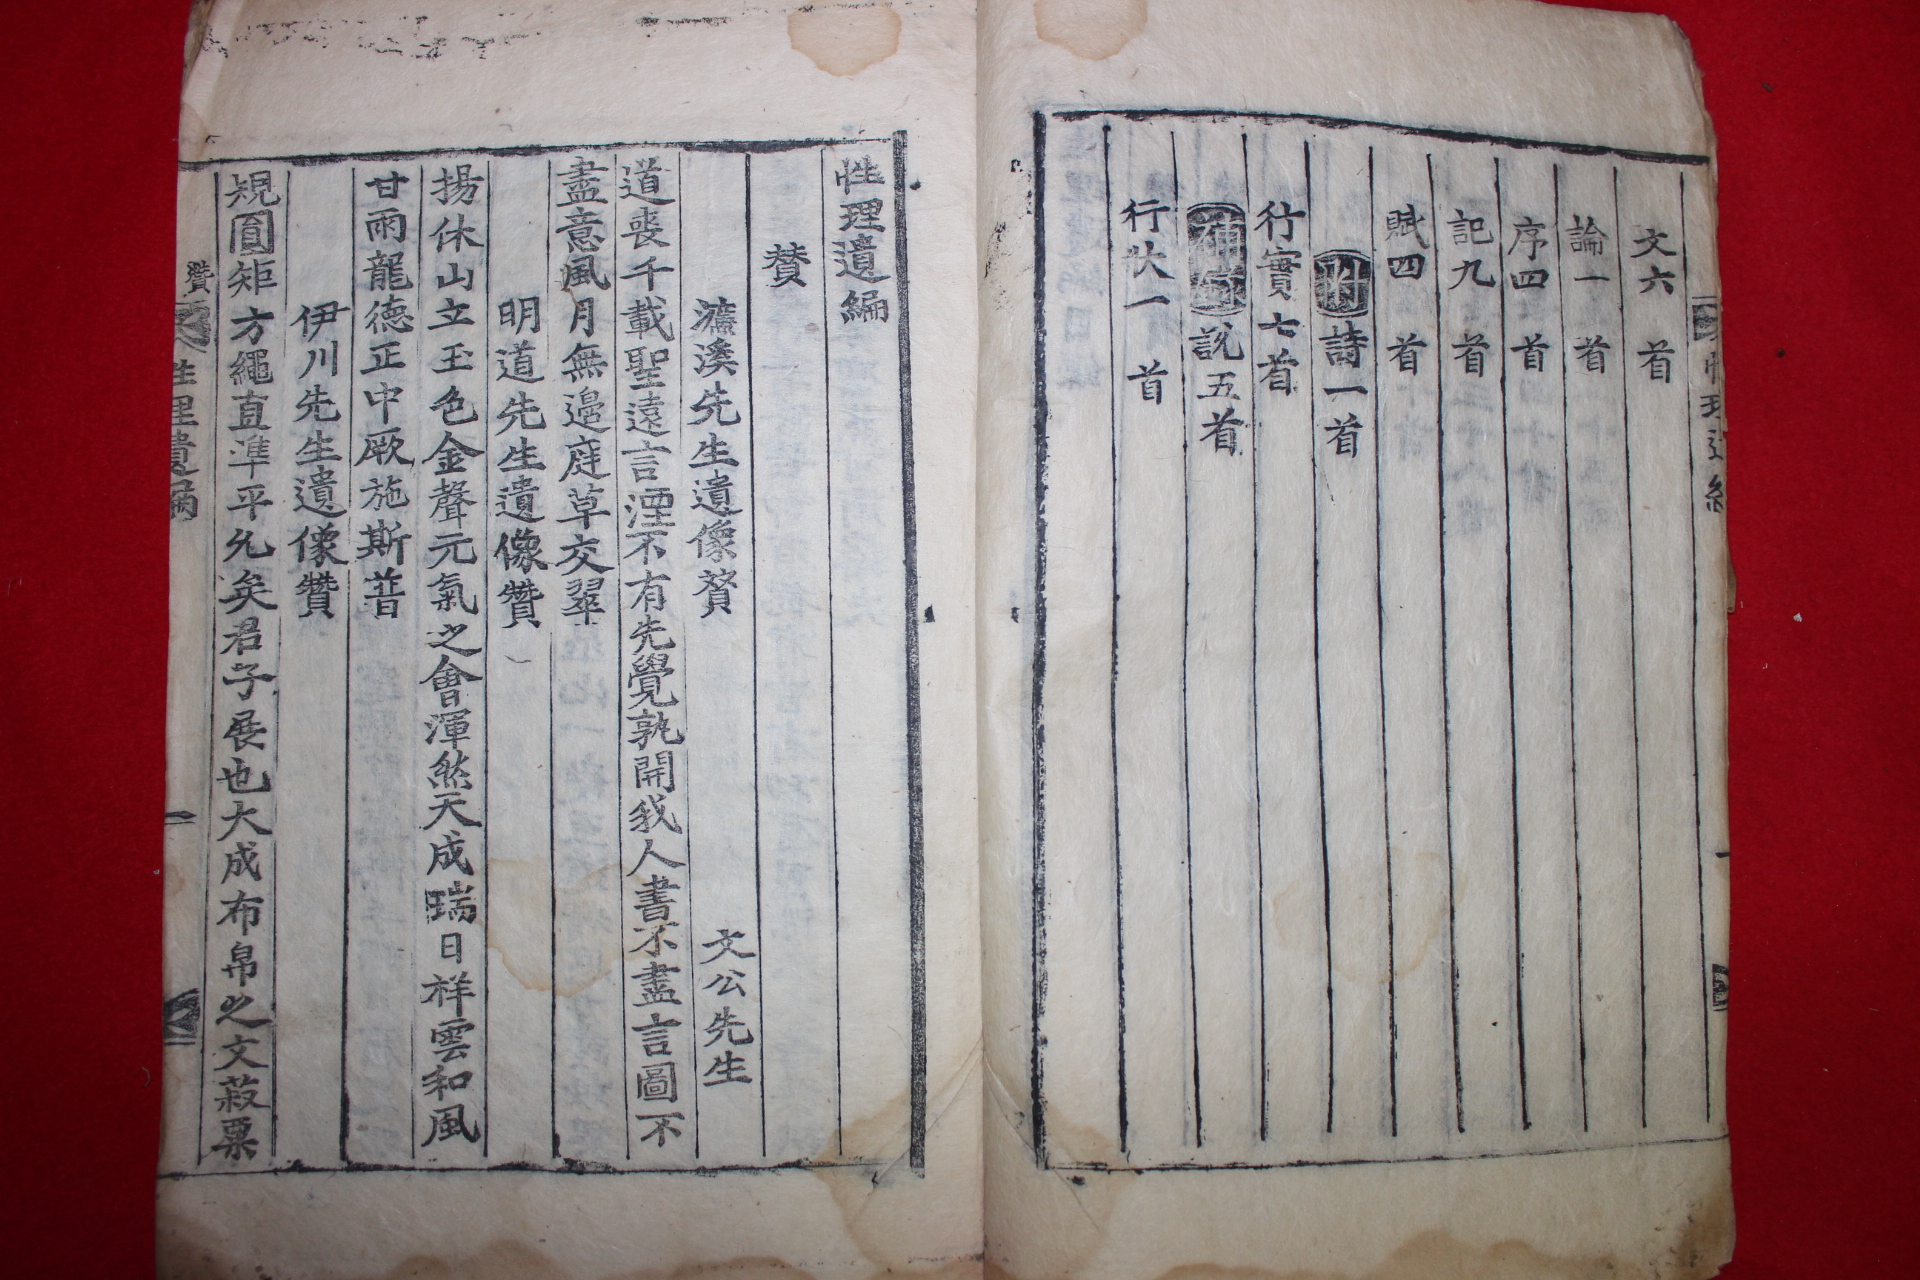 文六首
論一首
序四首
記九首
賦四首
附詩一首
行實七首
補遺說五首
行狀一首
性理遺編
賛
濂溪先生遺像贊 文公先生
道喪千載聖遠言湮不有先覺孰開我人書不盡言圖不
盡意風月無邊庭草交翠
明道先生遺像贊
揚休山立玉色金聲元氣之會渾然天成瑞日祥雲和風
甘雨龍德正中厥施斯普
伊川先生遺像贊
規圓矩方繩直準平允矣君子展也大成布帛之文菽粟
贊 性理遺編 一